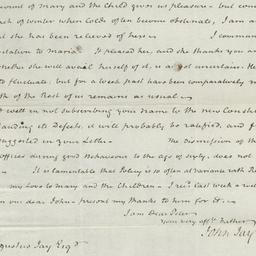 ount of Mary and the Child gives us pleasure - but
of winter when Colds often become obstinate, I am a
she has been relieved of hers - I commun
tation to Maria. It pleased her, and she thanks you
whether she will avail herself of it, is uncertain. He
to fluctuate, but for a week past have been comparatively
th of the Rest of us remains as usual -
well in not subscribing your Name to the new Const
anding its Defects, it will probably be ratified, and
suggested in your Letter - The dismission of
offices during good Behaviour to the age of sixty, does not
It is lamentable that Policy is so often at variance with
my Love to Mary and the Children - I recd. last week a
from our dear John - present my thanks to him for it.
I am Dear Peter
Your very affte. Father
John Jay
Augustus Jay Esqr.